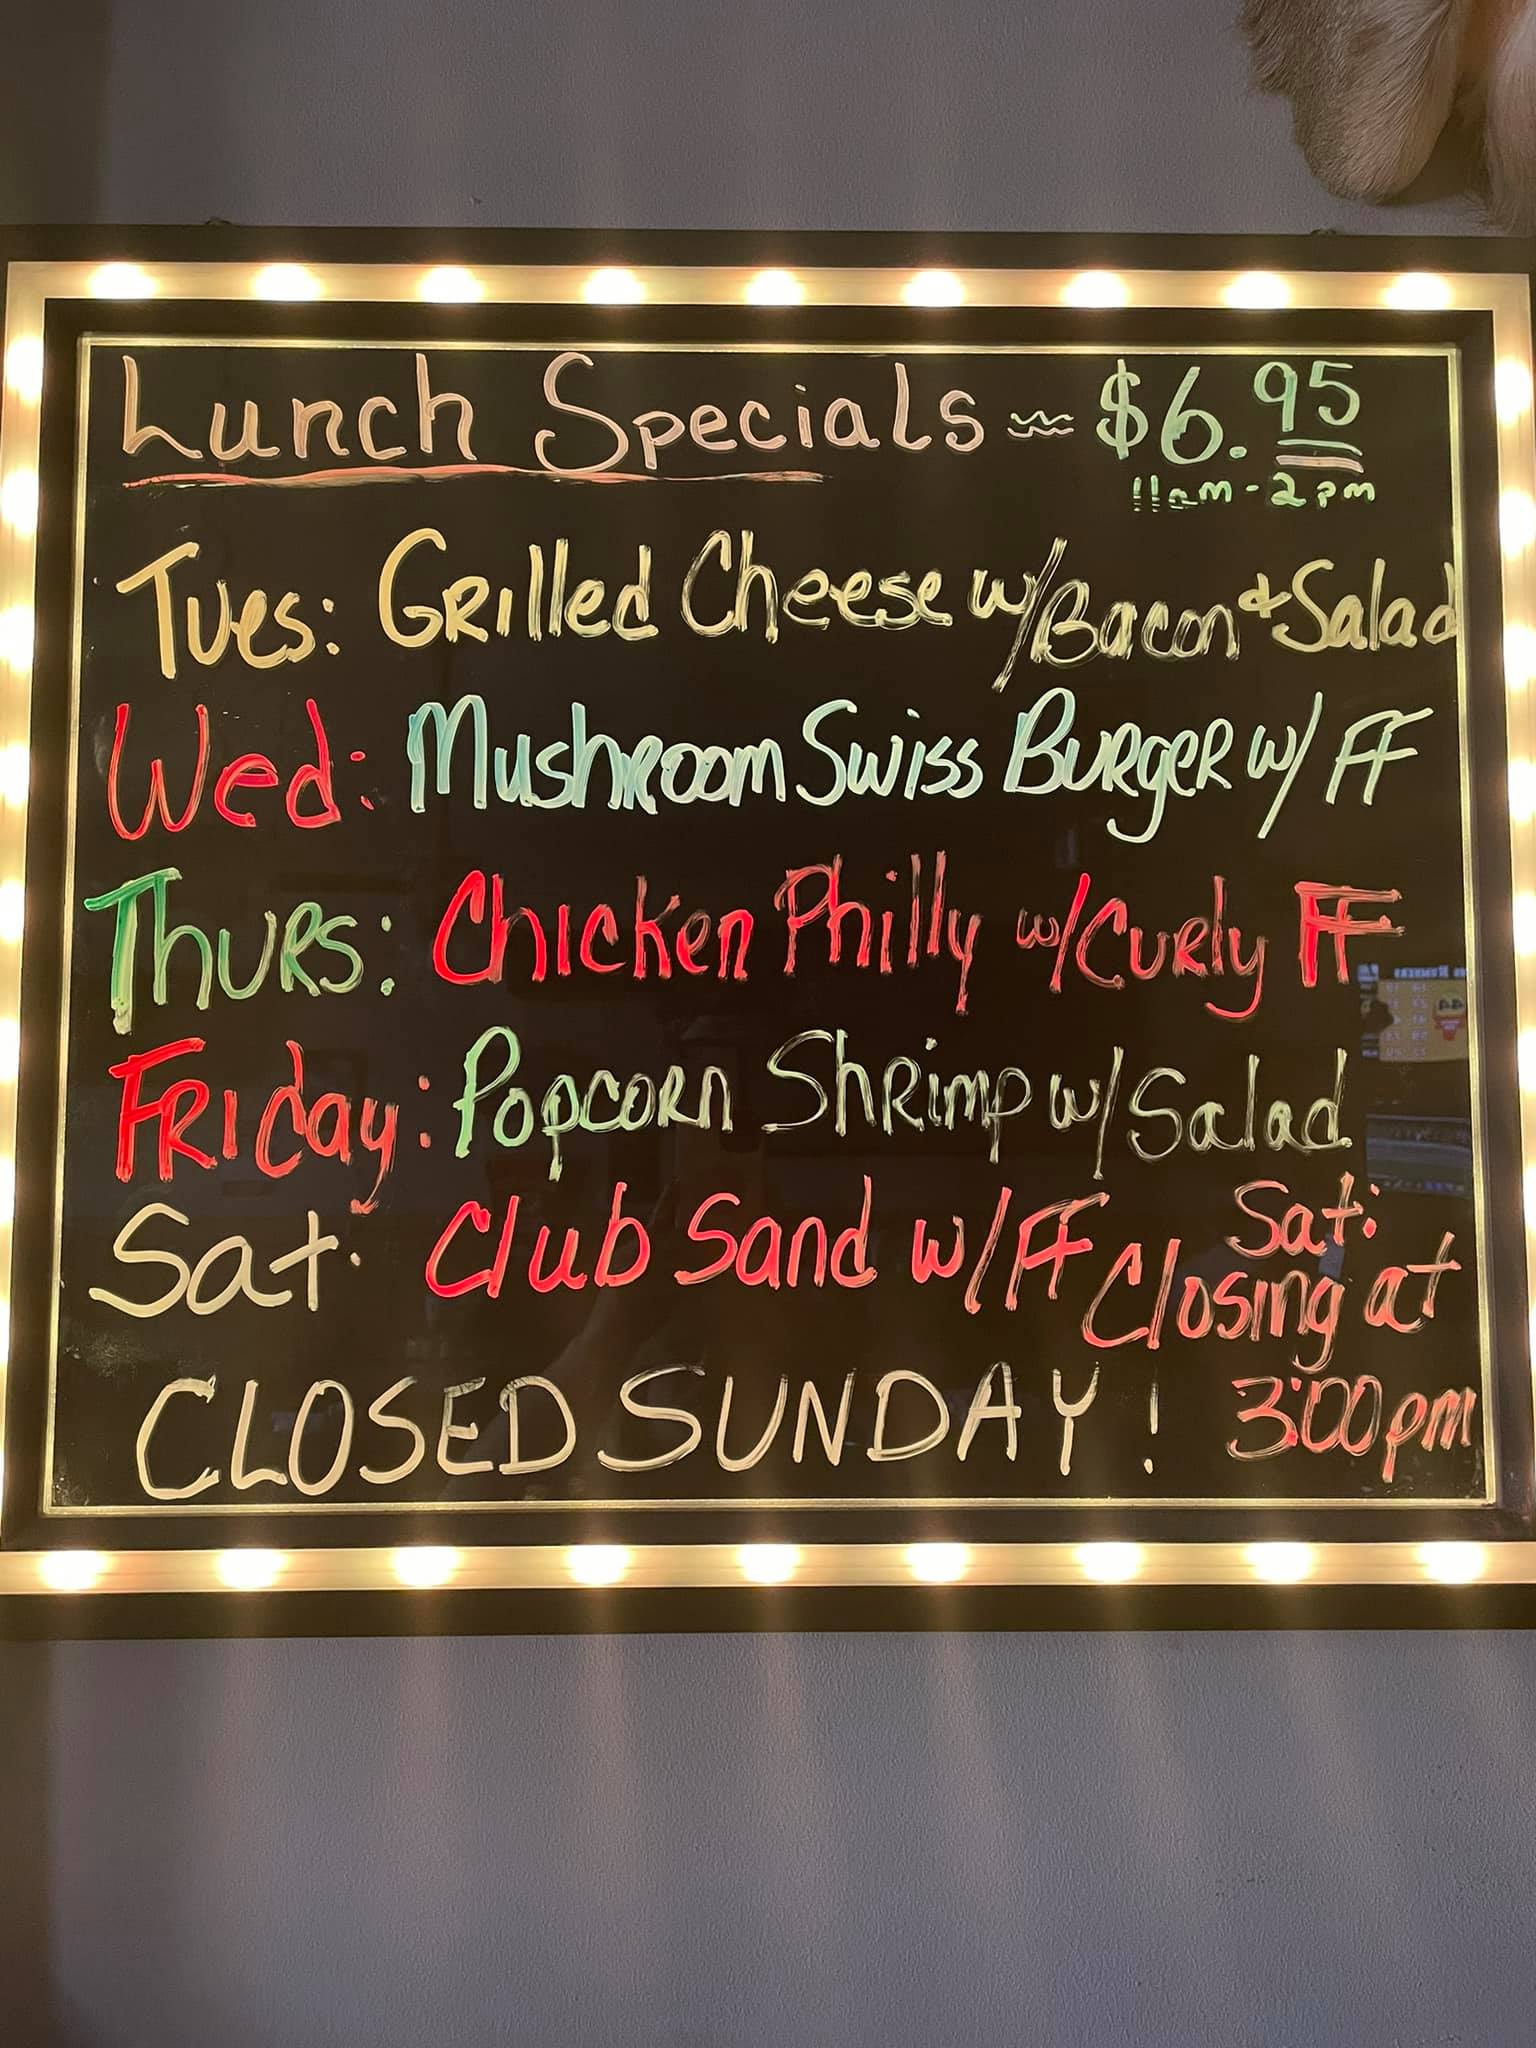 Lunch Specials ~ $6.95
11am - 2pm
Tues: Grilled Cheese w/Bacon & Salad
Wed: Mushroom Swiss Burger w/ FF
Thurs: Chicken Philly w/Curly FF
Friday: Popcorn Shrimp w/ Salad
Sat. Club Sand w/ FF
Sat: Closing at 3:00pm
CLOSED SUNDAY!